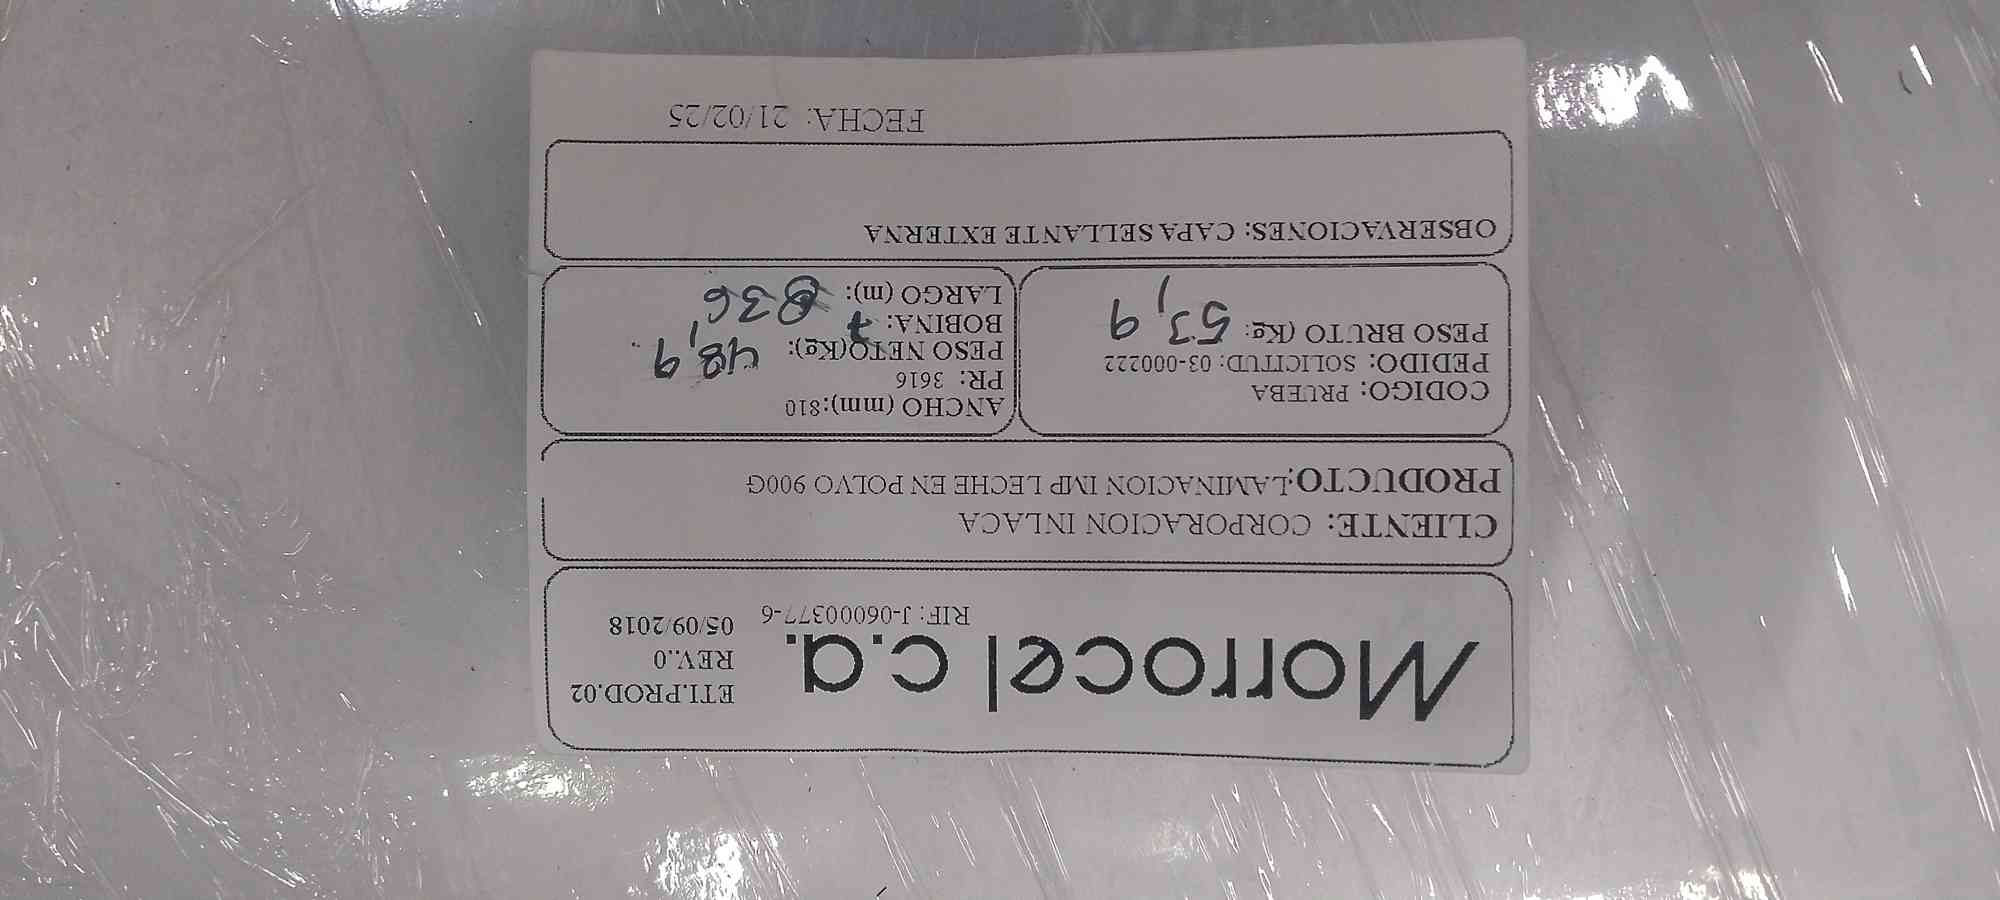 Morrocel c.a.
RIF: J-06000377-6
ETI.PROD.02
REV..0
05/09/2018
CLIENTE: CORPORACION INLACA
PRODUCTO: LAMINACION IMP LECHE EN POLVO 900G
CODIGO: PRUEBA
PEDIDO: SOLICITUD: 03-000222
PESO BRUTO (Kg: 53,9
ANCHO (mm):810
PR: 3616
PESO NETO(Kg): 48,9
BOBINA: 7
LARGO (m): 836
OBSERVACIONES: CAPA SELLANTE EXTERNA
FECHA: 21/02/25